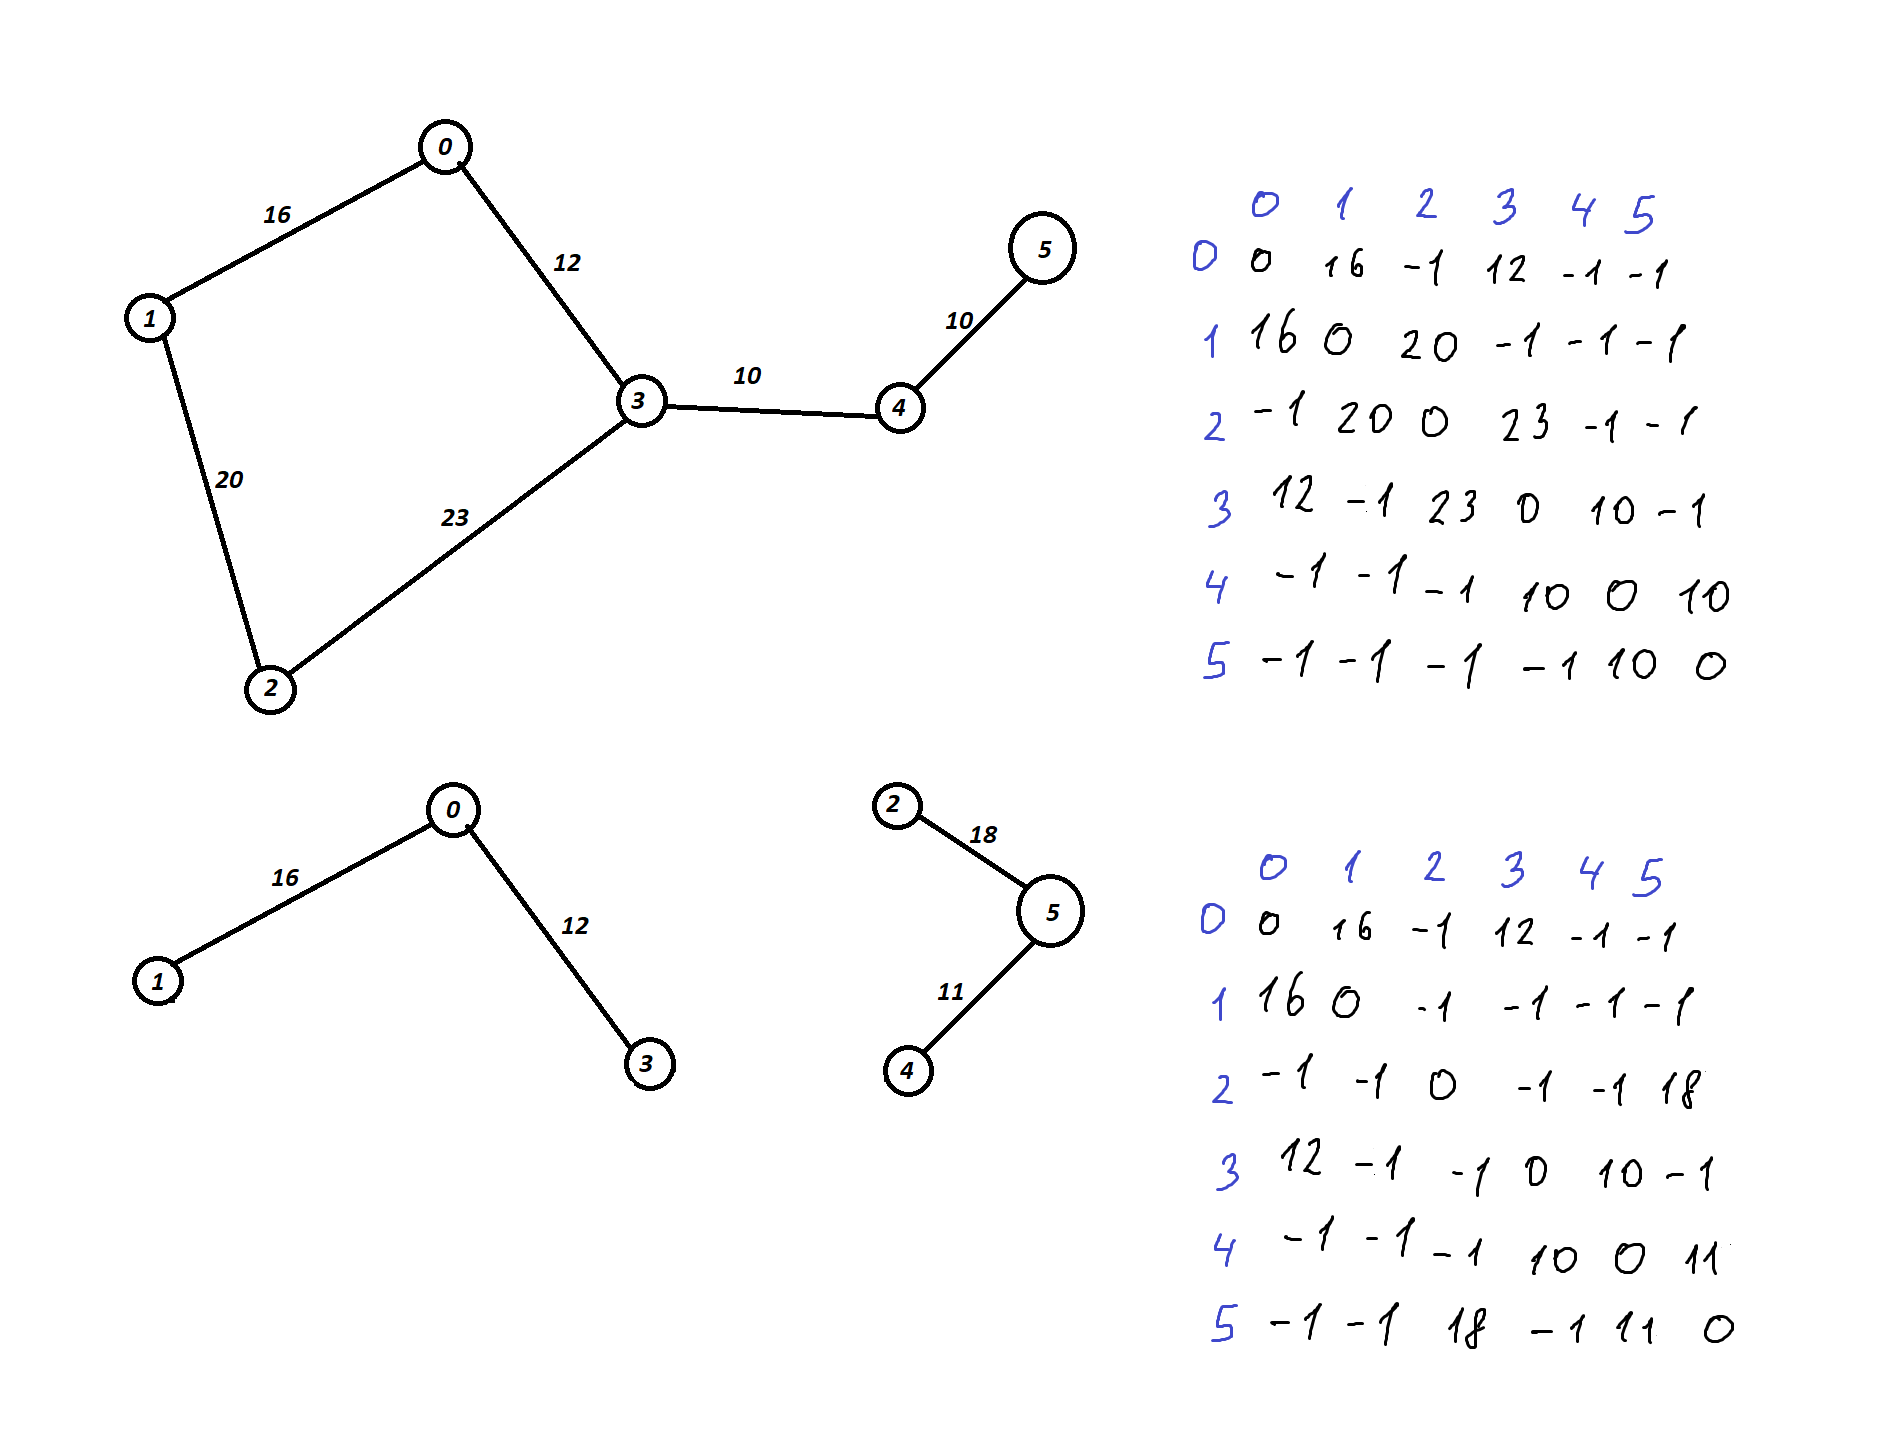 0
16
12
5
1
10
10
3
4
20
23
2
0 1 2 3 4 5
0 0 16 -1 12 -1 -1
1 16 0 20 -1 -1 -1
2 -1 20 0 23 -1 -1
3 12 -1 23 0 10 -1
4 -1 -1 -1 10 0 10
5 -1 -1 -1 -1 10 0
0
16
12
1
3
2
18
5
11
4
0 1 2 3 4 5
0 0 16 -1 12 -1 -1
1 16 0 -1 -1 -1 -1
2 -1 -1 0 -1 -1 18
3 12 -1 -1 0 10 -1
4 -1 -1 -1 10 0 11
5 -1 -1 18 -1 11 0